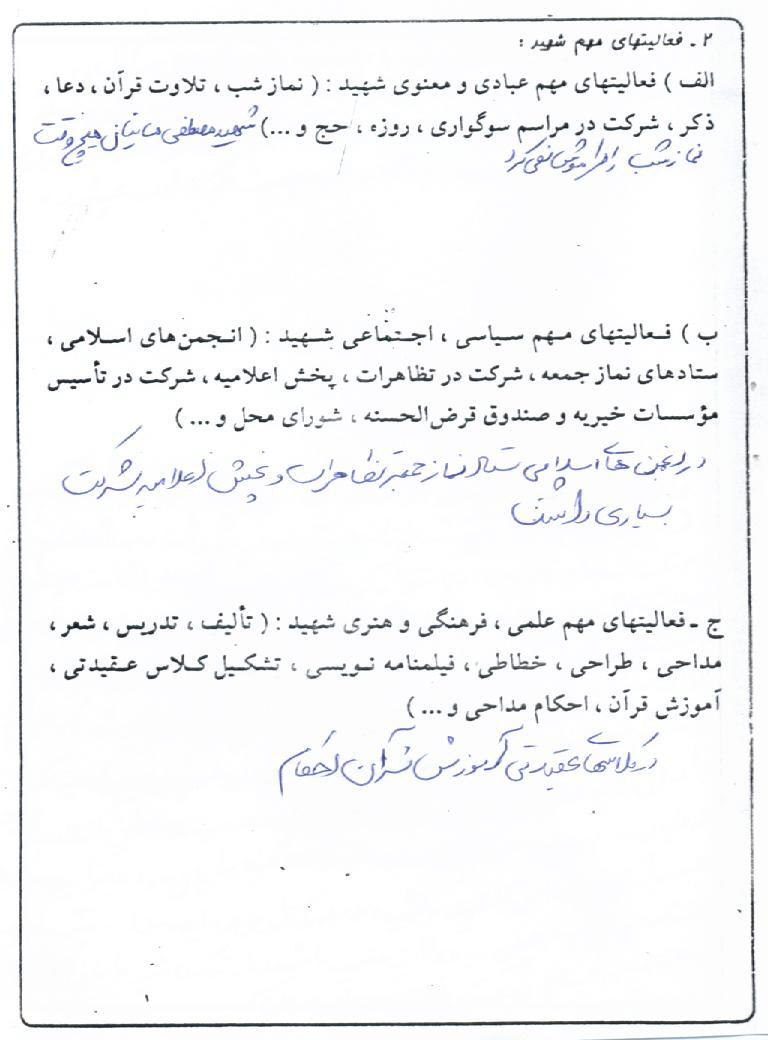 ۲ ـ فعالیتهای مهم شهید :
الف ) فعالیتهای مهم عبادی و معنوی شهید : ( نماز شب ، تلاوت قرآن ، دعا ،
ذکر ، شرکت در مراسم سوگواری ، روزه ، حج و ...) شهید مصطفی هیچ وقت
نماز شب را فراموش نمی کرد
ب ) فعالیتهای مهم سیاسی ، اجتماعی شهید : ( انجمن‌های اسلامی ،
ستادهای نماز جمعه ، شرکت در تظاهرات ، پخش اعلامیه ، شرکت در تأسیس
مؤسسات خیریه و صندوق قرض‌الحسنه ، شورای محل و ... )
در انجمن های اسلامی ستاد نماز جمعه تظاهرات و پخش اعلامیه شرکت
بسیاری داشت
ج ـ فعالیتهای مهم علمی ، فرهنگی و هنری شهید : ( تألیف ، تدریس ، شعر ،
مداحی ، طراحی ، خطاطی ، فیلمنامه نویسی ، تشکیل کلاس عقیدتی ،
آموزش قرآن ، احکام مداحی و ... )
در کلاسهای عقیدتی آموزش قرآن احکام